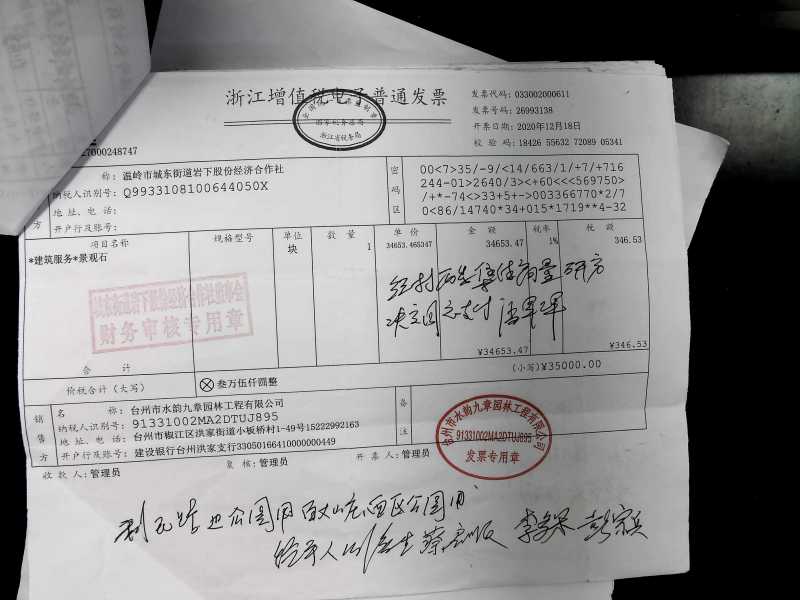 浙江增值税电子普通发票
国家税务总局
浙江省税务局
发票代码: 033002000611
发票号码: 26993138
开票日期: 2020年12月18日
校验码: 18426 55632 72089 05341
27000248747
称: 温岭市城东街道岩下股份经济合作社
纳税人识别号: Q9933108100644050X
地址、电话:
方 开户行及账号:
密码区
00<7>35/-9/<14/663/1/+7/+716
244-01>2640/3><+60<<<569750>
/+*-74<>33+5+->003366770*2/7
0<86/14740*34+015*1719**4-32
项目名称 规格型号 单位 数量 单价 金额 税率 税额
*建筑服务*景观石 块 1 34653.465347 34653.47 1% 346.53
城东街道岩下股份经济合作社监事会
财务审核专用章
决定同意支付
合计 ¥34653.47 ¥346.53
价税合计（大写） ⊗叁万伍仟圆整 (小写)¥35000.00
销售方
名称: 台州市水韵九章园林工程有限公司
纳税人识别号: 91331002MA2DTUJ895
地址、电话: 台州市椒江区洪家街道小板桥村1-49号15222992163
开户行及账号: 建设银行台州洪家支行33050166410000000449
备注
台州市水韵九章园林工程有限公司
91331002MA2DTUJ895
发票专用章
收款人: 管理员 复核: 管理员 开票人: 管理员
经手人